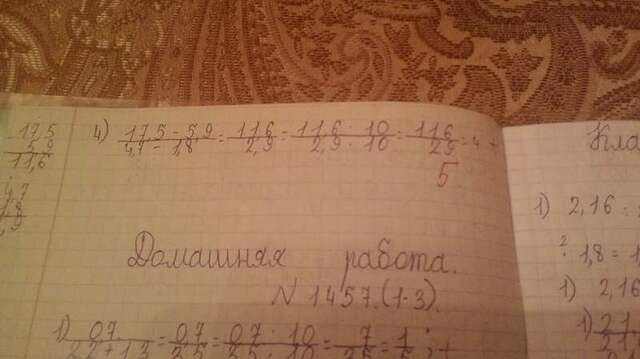 17,5
5,9
11,6
4) 17,5 - 5,9 / 4,7 - 1,8 = 11,6 / 2,9 = 11,6 · 10 / 2,9 · 10 = 116 / 29 = 4
5
4,7
1,8
2,9
Домашняя работа.
N 1457.(1-3).
1) 0,7 / 2,2 + 1,3 = 0,7 / 3,5 = 0,7 · 10 / 3,5 · 10 = 7 / 35 = 1 / 5
Кла
1) 2,16 :
: 1,8 = 1,
1) 2,16